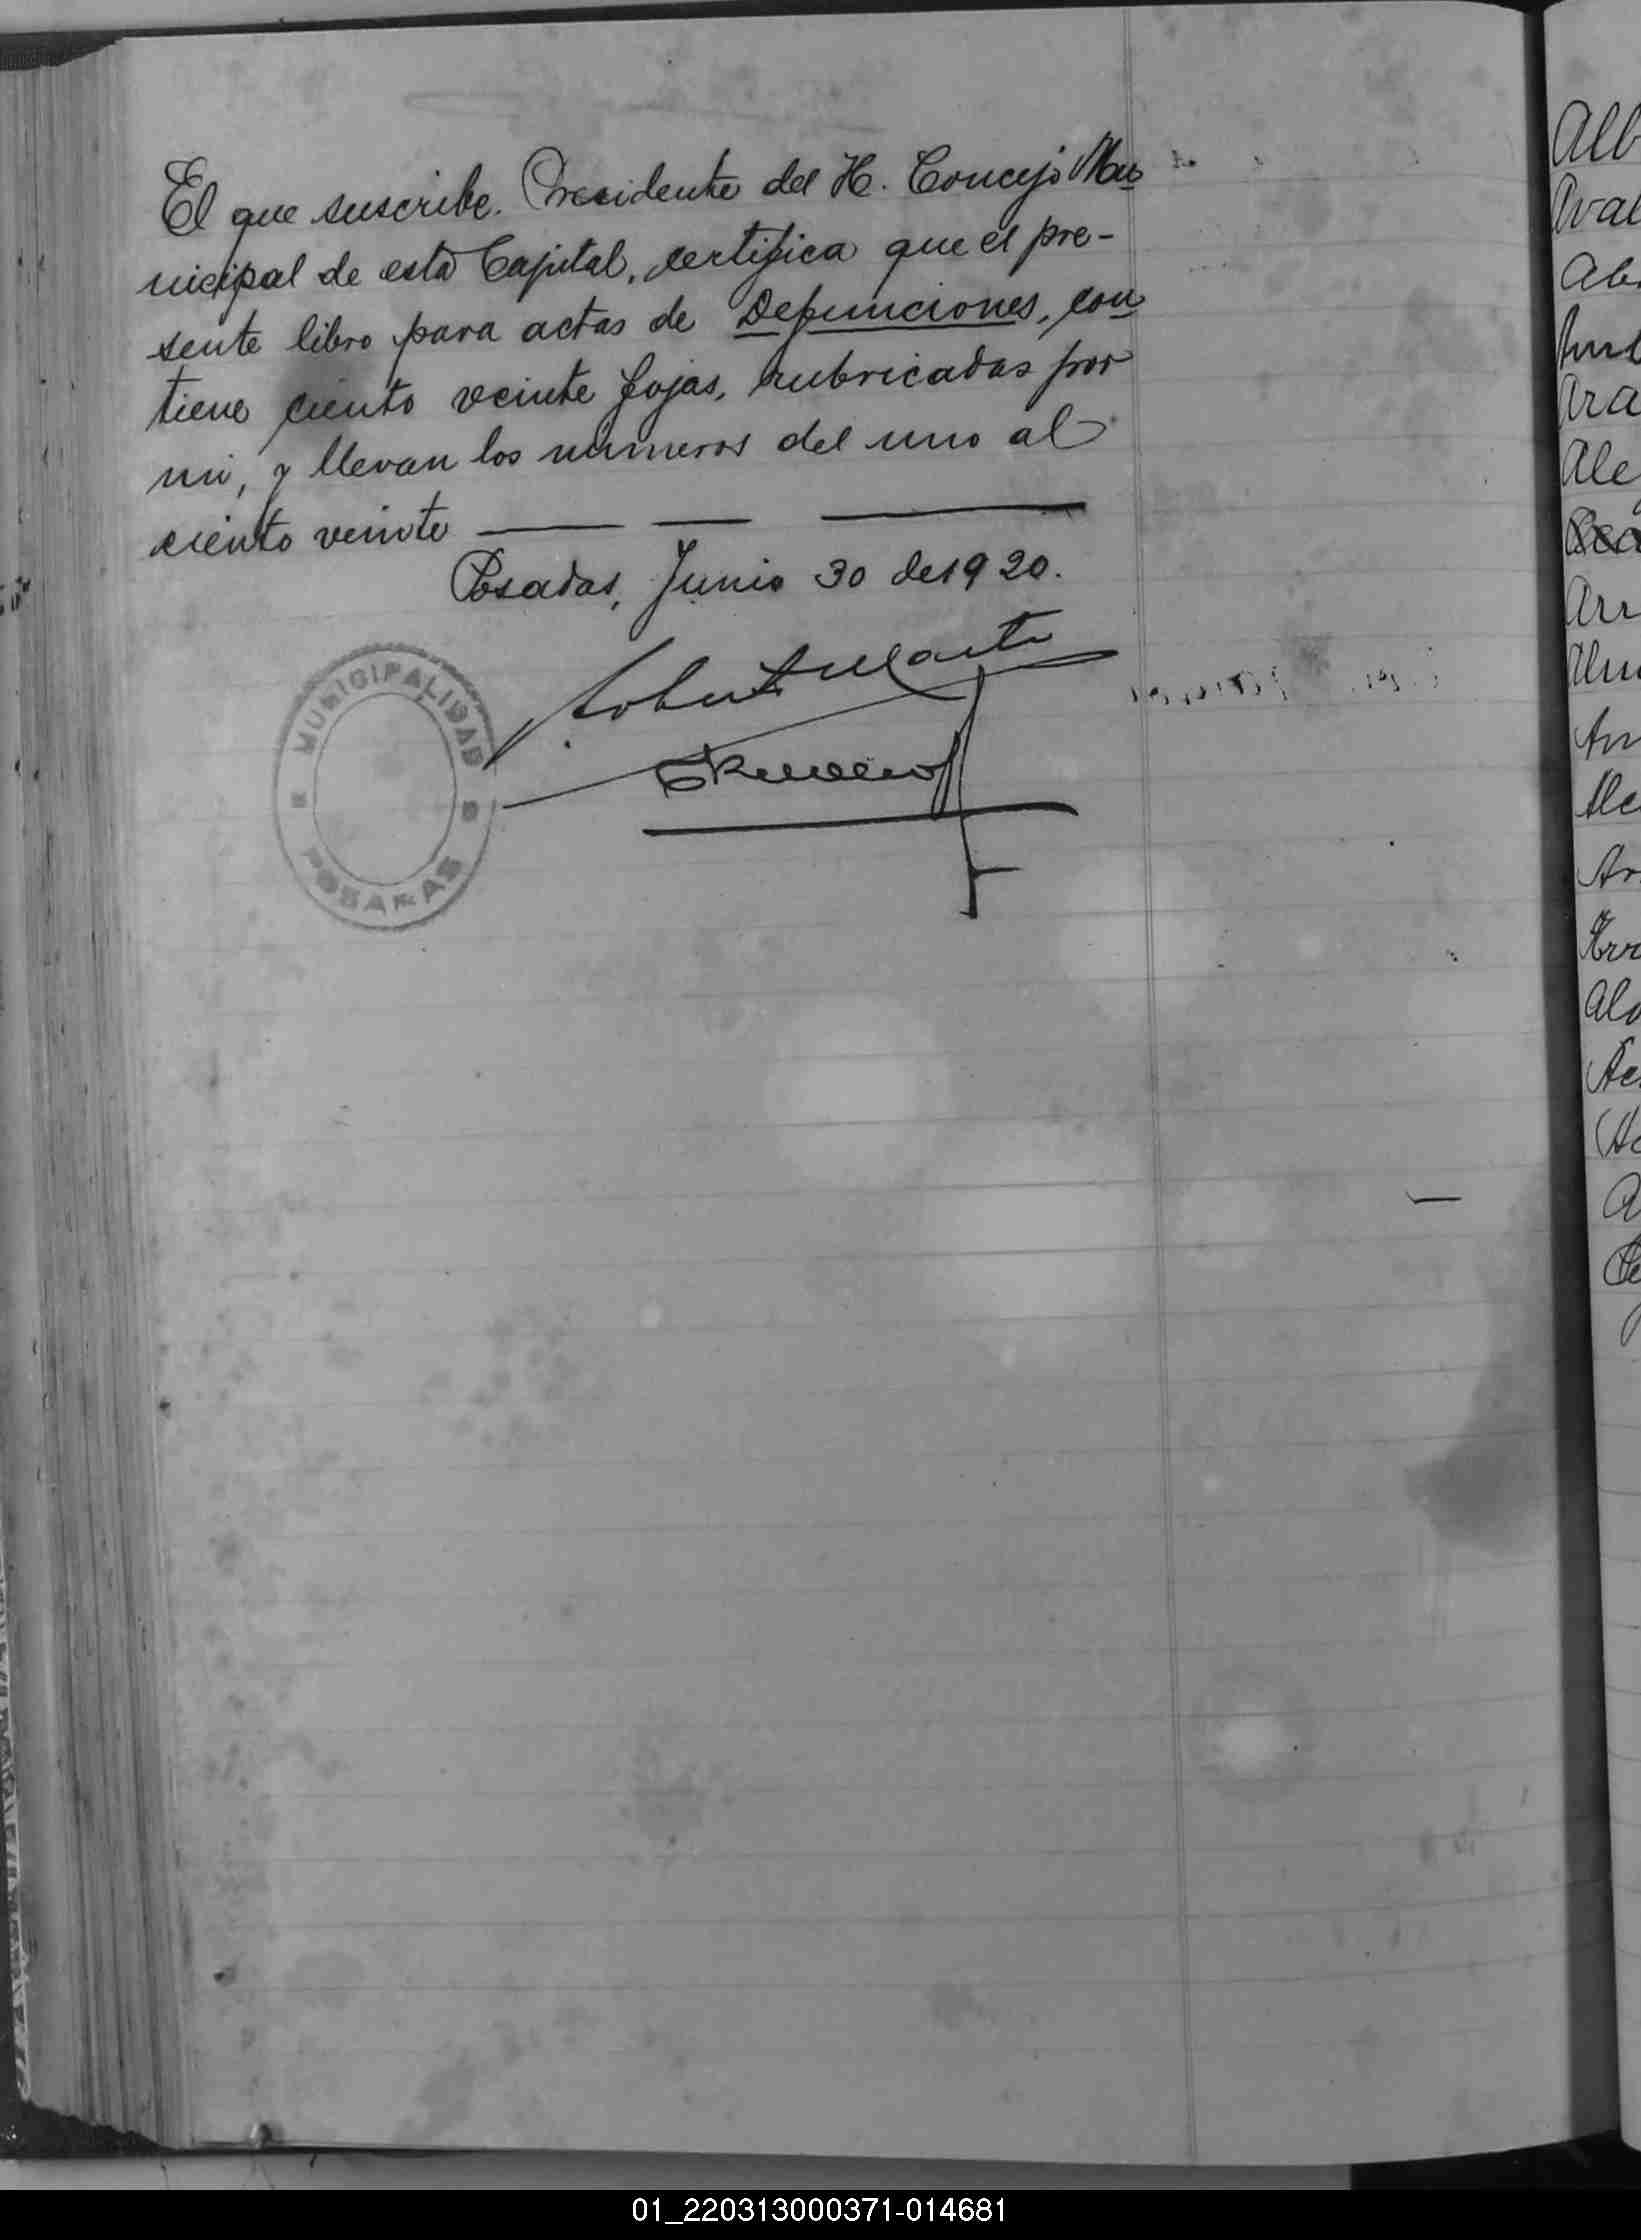 El que suscribe. Presidente del H. Concejo Mu
nicipal de esta Capital, certifica que el pre-
sente libro para actas de Defunciones, con
tiene ciento veinte fojas, rubricadas por
mi, y llevan los numeros del uno al
ciento veinte
Posadas, Junio 30 de 1920.
MUNICIPALIDAD
POSADAS
Alb
Aval
Ara
Ale
Arr
01_220313000371-014681